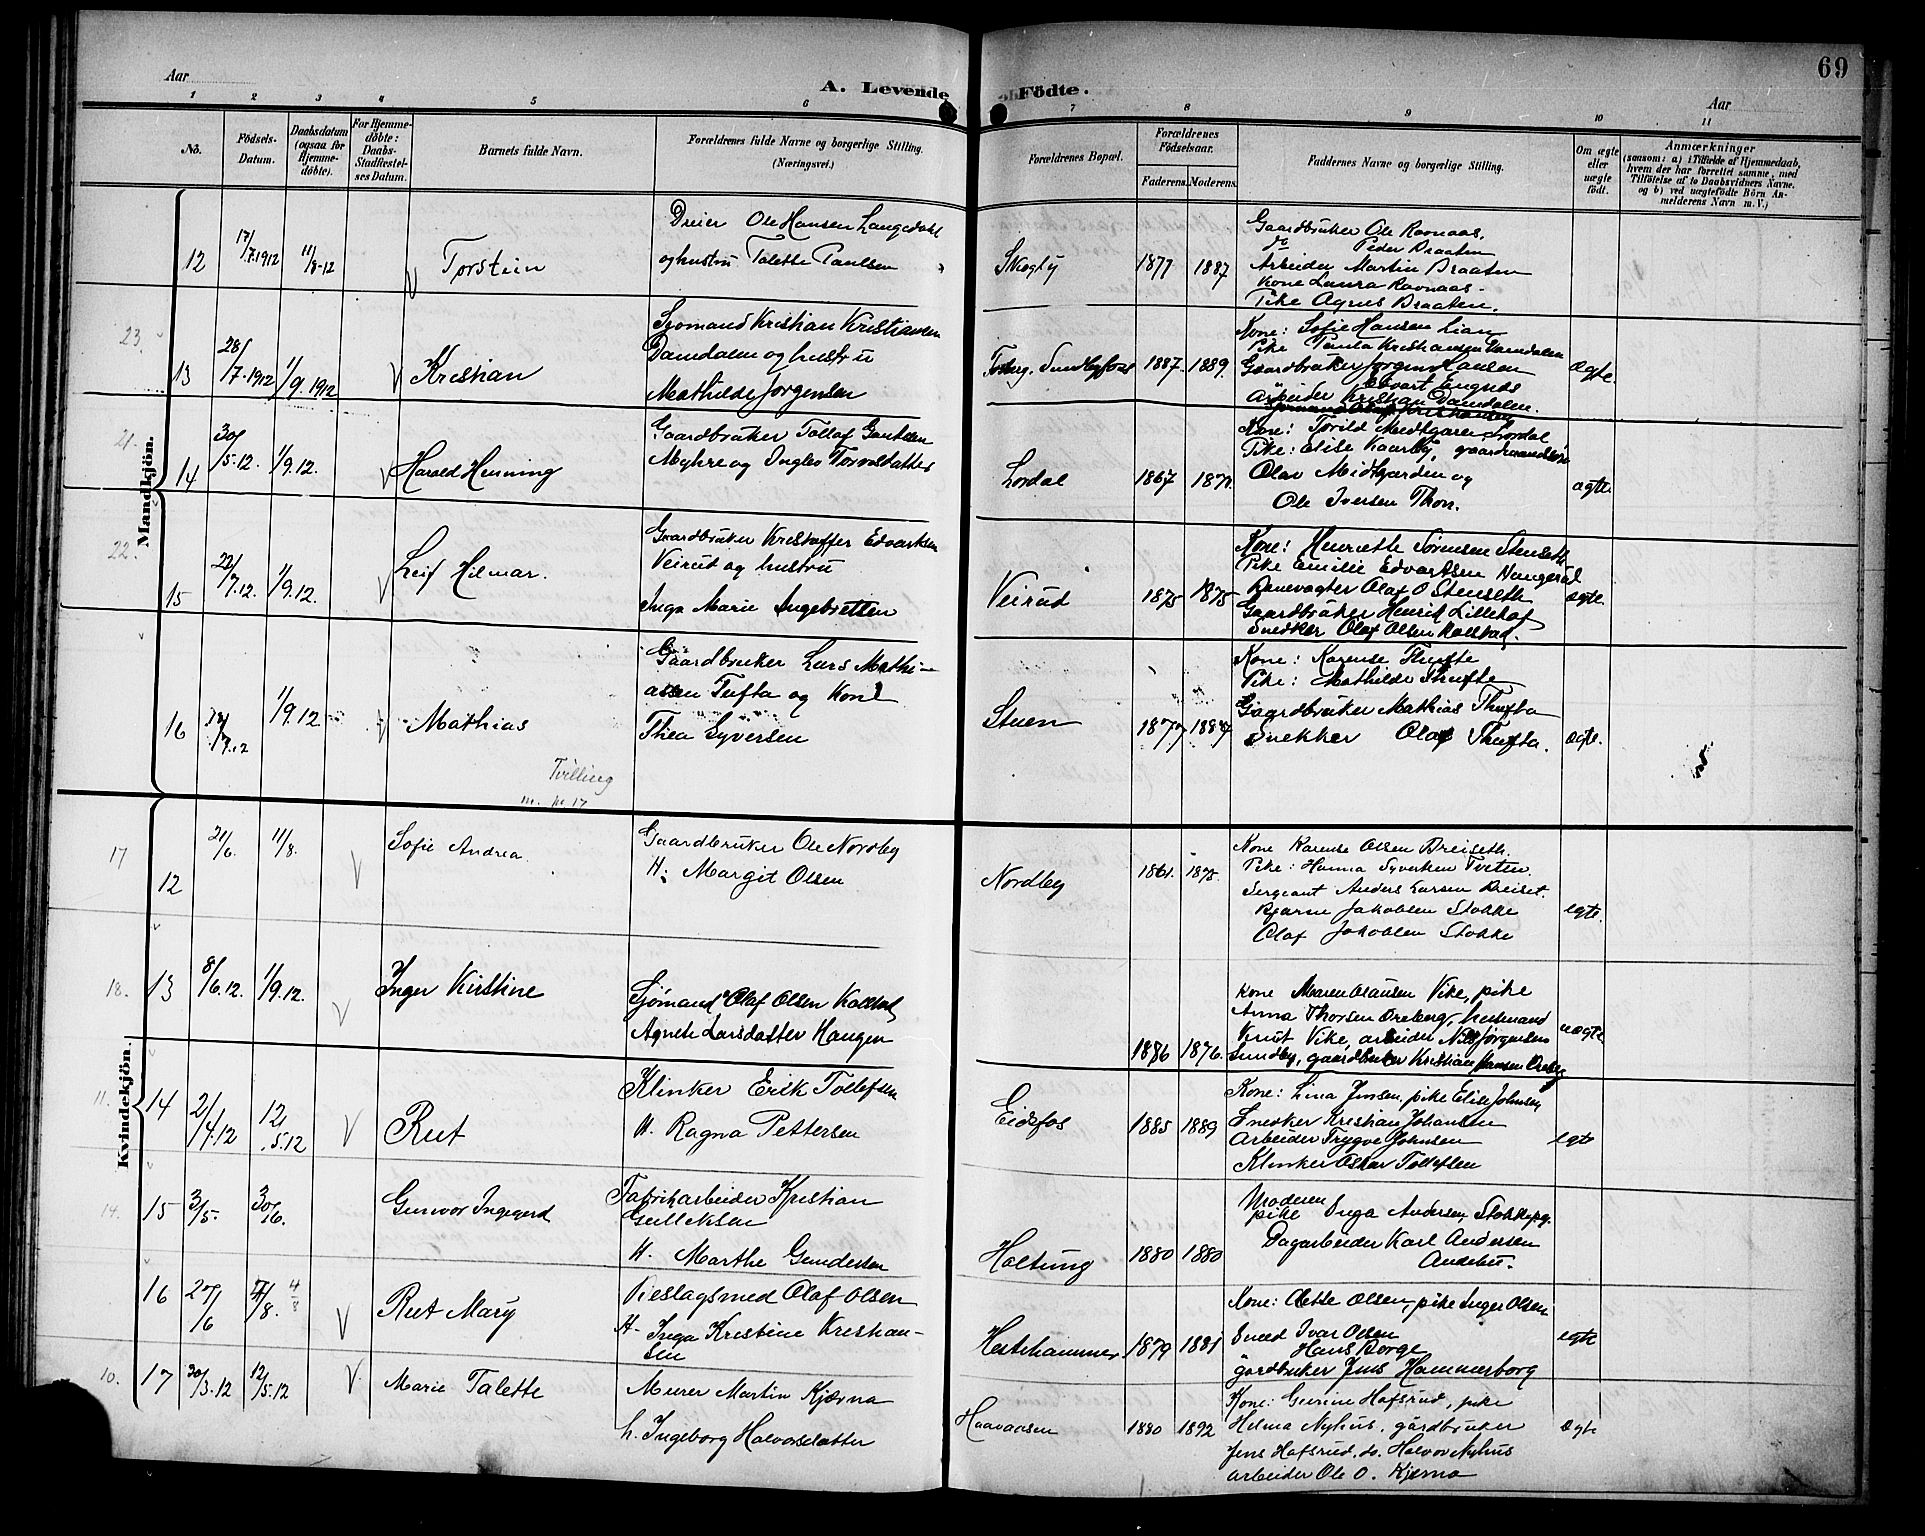 69
Aar
A. Levende Födte.
Aar
1 2 3 4 5 6 7 8 9 10 11
Nô.
Födsels-Datum.
Daabsdatum (ogsaa for Hjemme-döbte).
For Hjemme-döbte: Daabs-Stadfæstel-ses Datum.
Barnets fulde Navn.
Forældrenes fulde Navne og borgerlige Stilling. (Næringsvei.)
Forældrenes Bopæl.
Forældrenes Födselsaar.
Faderens. Moderens.
Faddernes Navne og borgerlige Stilling.
Om ægte eller uægte födt.
Anmærkninger
(saasom: a) i Tilfælde af Hjemmedaab,
hvem der har forrettet samme, med
Tilföielse af to Daabsvidners Navne.
og b) ved uægtefödte Börn An-
melderens Navn m. V.)
Mandkjön.
12 17/7.1912 11/8-12 Torstein
Dreier Ole Hansen Langedahl
og hustru Talette Paulsen
Skogly 1877 1887
Gaardbruker Ole Ravnaas.
do Peder Braaten
Arbeider Martin Braaten
Kone Laura Ravnaas.
Pike Agnes Braaten.
23.
13 28/7.1912 1/9.1912 Kristian
Sjömand Kristian Kristiansen
Damdalen og hustru
Mathilde Jorgensen
1887. 1889.
Kone: Sofie Hansen Lian
Pike Paula Kristiansen Damdalen
Gaardbruker Jorgen Hansen
Edvart Engnes
Arbeider Kristian Damdalen.
Ægte.
21.
14 30/5.12. 1/9.12. Harald Henning
Gaardbruker Tollef Gautesen
Myhre og Ingleo Torvosdatter
Lordal 1867
Kone: Torild Midtgaren Lordal
Pike: Elise Kaarby,
Olav Midtgarden og
Ole Iversen Thon.
ægte
22.
15 22/7.12. 1/9.12. Leif Hilmar.
Gaardbruker Kristoffer Edvartsen
Veirud og hustru
Inga Marie Ingebretsen
Veirud 1875 1875
Kone: Henriette Sörensen Stenseth
Pike Emilie Edvartsen Haugerud
Banevagter Olaf O Stenseth
Gaardbruker Henrik Lillehof
Snedker Olaf Olsen Kolstad.
ægte.
16 1/9.12 Mathias
Gaardbruker Lars Mathi-
assen Tufta og Kone
Thea Syversen
Tvilling
m. nr 17
Stuen 1877 1884
Kone: Karense Thufte
Pike: Mathilde Thufte
Gaardbruker Mathias Thufta
Snekker Olaf Thufta.
ægte.
Kvindekjön.
17
12 21/6. 11/8. Sofie Andrea.
Gaardbruker Ole Nordby
H. Margit Olsen
Nordby 1861. 1875.
Kone Karense Olsen Breiseth.
Pike: Hanna Syvertsen Tveten.
Sergeant Anders Larsen Breiset.
Bjarne Jakobsen Stokke
Olaf Jakobsen Stokke
egte.
18.
13 8/6.12. 1/9.12. Inger Kirstine
Sjömand Olaf Olsen Kolstad
Agnete Larsdatter Haugen
1886 1876.
Kone Maren Olausen Vike, pike
Anna Thorsen Oreberg, husmand
Knut Vike, arbeider Nils Jörgensen
Sundby, gaardbruker Kristian Hansen Oreberg
uægte
11.
14 2/4.12 12/5.12 Rut
Klinker Erik Tollefsen
H. Ragna Pettersen
Eidsfos 1885 1889
Kone: Lina Jensen, pike Elise Johnsen
Snedker Kristian Johansen
Arbeider Trygve Johnsen
Klinker Oskar Tollefsen
egte
14.
15 3/5. 30/6. Gunvor Ingegerd
Fabrikarbeider Kristian
Gulliksen
H. Marthe Gundersen
Holtung 1880 1880
Moderen
pike Inga Andersen,
Dagarbeider Karl Andersen
Andebu.
16 4/8 Rut Mary
Beslagsmed Olaf Olsen
H. Inga Kristine Kristian-
sen
Hestehammer 1879 1881
Kone: Dette Olsen, pike Inger Olsen
Smed Ivar Olsen
Hans Borge
gårdbruker Jens Hammerborg
egte
10.
17 30/3.12 12/5.12 Marie Talette
Murer Martin Kjærna
h. Ingeborg Halvorsdatter
Haavaasen 1880 1892
Kone: Gurine Hafsrud, pike
Helma Nyhus, gårdbruker
Jens Hafsrud, do. Halvor Nyhus
arbeider Ole O. Kjerna
Ægte